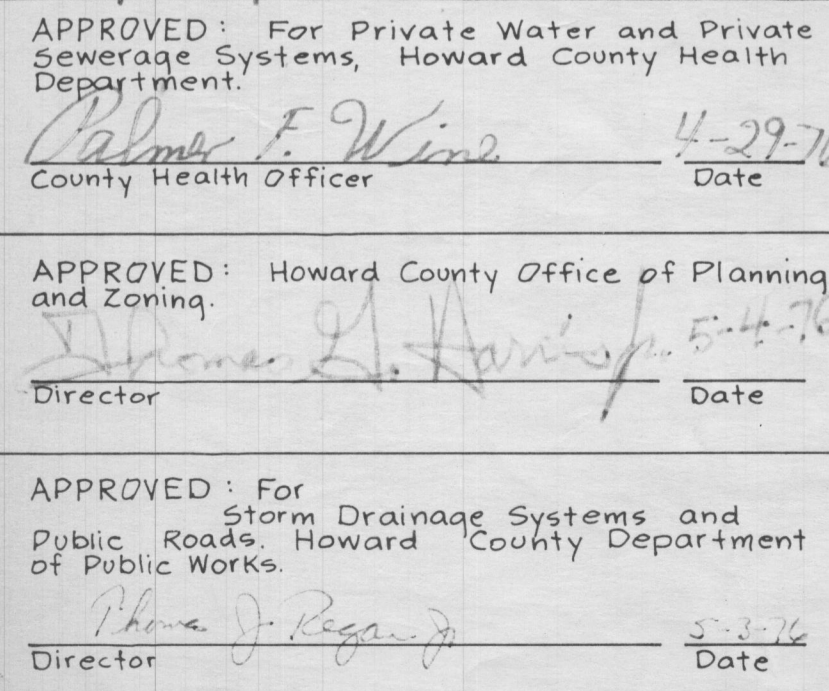 APPROVED: For Private Water and Private
Sewerage Systems, Howard County Health
Department.
Palmer F. Wine 4-29-76
County Health Officer Date
APPROVED: Howard County Office of Planning
and Zoning.
Thomas G. Harris Jr. 5-4-76
Director Date
APPROVED: For
Storm Drainage Systems and
Public Roads. Howard County Department
of Public Works.
Thomas J. Regan Jr 5-3-76
Director Date